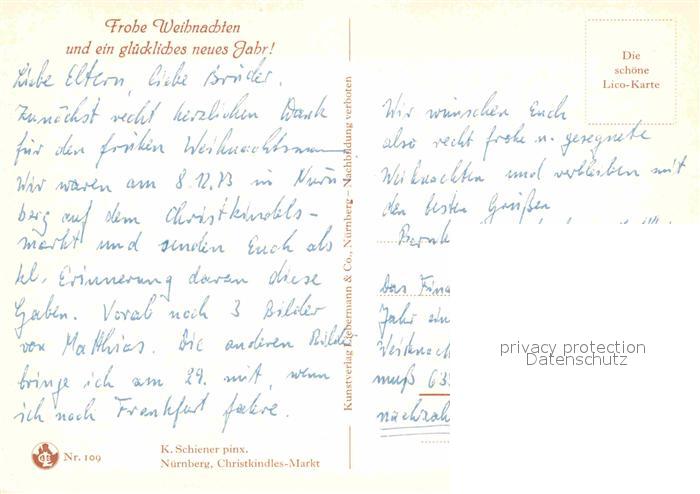 Frohe Weihnachten
und ein glückliches neues Jahr!
Liebe Eltern, liebe Brüder.
Zunächst recht herzlichen Dank
für den frühen Weihnachtsmann
Wir waren am 8.12.73 in Nürn
berg auf dem Christkindels-
markt und senden Euch als
kl. Erinnerung daran diese
Gaben. Vorab noch 3 Bilder
von Matthias. Die anderen Bilder
bringe ich am 29. mit, wenn
ich nach Frankfurt fahre.
Nr. 109
K. Schiener pinx.
Nürnberg, Christkindles-Markt
Kunstverlag Liebermann & Co., Nürnberg - Nachbildung verboten
Die
schöne
Lico-Karte
Wir wünschen Euch
also recht frohe u. gesegnete
Weihnachten und verbleiben mit
den besten Grüßen
Das Fina
Jahr ein
Weihnach
muß
nachzah
privacy protection
Datenschutz